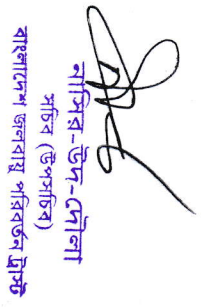 নাসির-উদ-দৌলা
সচিব (উপসচিব)
বাংলাদেশ জলবায়ু পরিবর্তন ট্রাস্ট